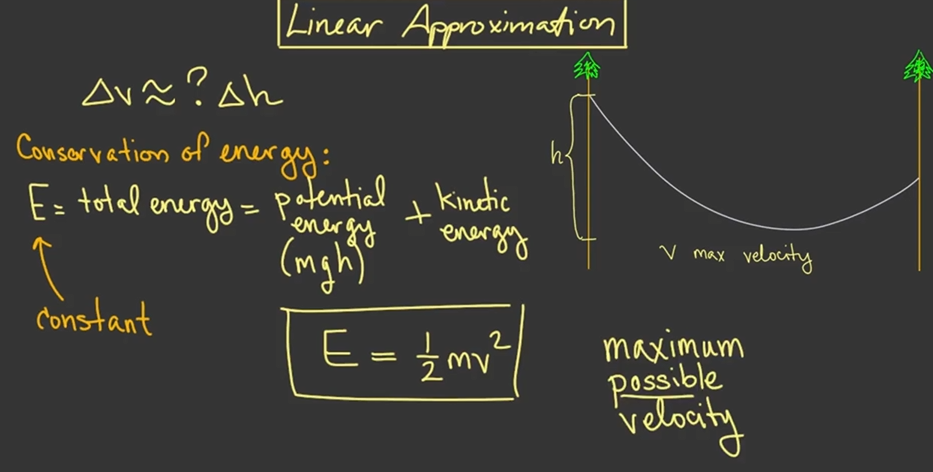 Linear Approximation
Δv ≈ ? Δh
Conservation of energy:
E = total energy = potential energy (mgh) + kinetic energy
constant
E = ½mv²
h
v max velocity
maximum
possible
velocity